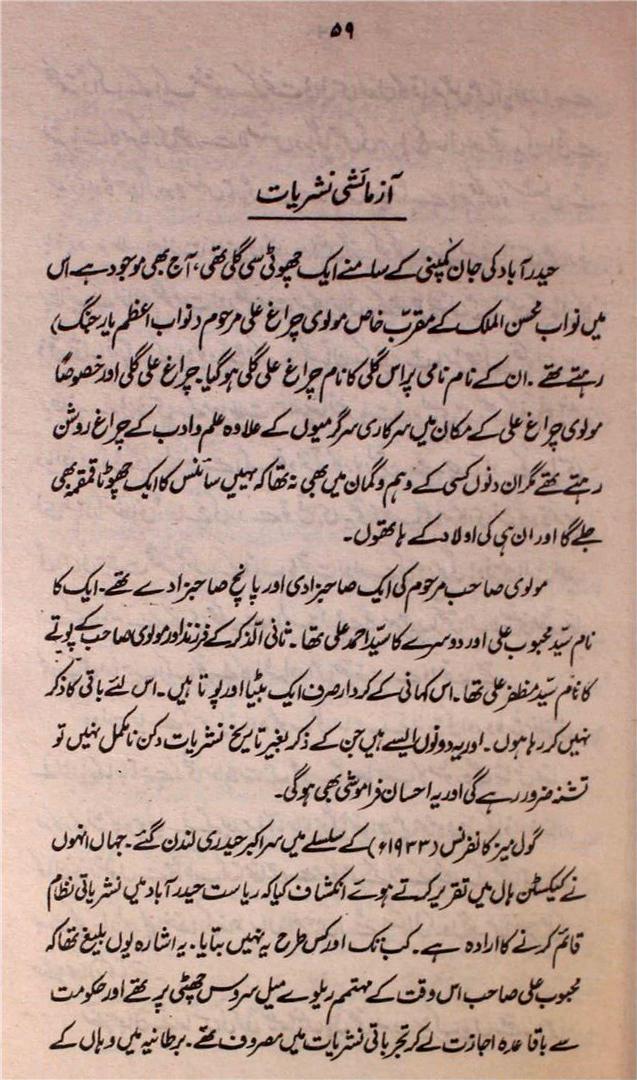 ۵۹
آزمائشی نشریات
حیدرآباد کی جان کمپنی کے سامنے ایک چھوٹی سی گلی تھی، آج بھی موجود ہے۔ اس
میں نواب محسن الملک کے مقربّ خاص مولوی چراغ علی مرحوم (نواب اعظم یار جنگ)
رہتے تھے۔ ان کے نام نامی پر اس گلی کا نام چراغ علی گلی ہو گیا۔ چراغ علی گلی اور خصوصاً
مولوی چراغ علی کے مکان میں سرکاری سرگرمیوں کے علاوہ علم و ادب کے چراغ روشن
رہتے تھے مگر ان دنوں کسی کے وہم و گمان میں بھی نہ تھا کہ یہیں سائنس کا ایک چھوٹا قمقمہ بھی
جلے گا اور ان ہی کی اولاد کے ہاتھوں۔
مولوی صاحب مرحوم کی ایک صاحبزادی اور پانچ صاحبزادے تھے۔ ایک کا
نام سیّد محبوب علی اور دوسرے کا سیّد احمد علی تھا۔ ثانی الذّکر کے فرزند اور مولوی صاحب کے پوتے
کا نام سیّد مظفر علی تھا۔ اس کہانی کے کردار صرف ایک بیٹیا اور پوتا ہیں۔ اس لئے باقی کا ذکر
نہیں کر رہا ہوں۔ اور یہ دونوں ایسے ہیں جن کے ذکر بغیر تاریخ نشریات دکن نامکمل نہیں تو
تشنہ ضرور رہے گی اور یہ احسان فراموشی بھی ہو گی۔
گول میز کانفرنس (۱۹۳۳ء) کے سلسلے میں سر اکبر حیدری لندن گئے۔ جہاں انہوں
نے کیکسٹن ہال میں تقریر کرتے ہوئے انکشاف کیا کہ ریاست حیدرآباد میں نشریاتی نظام
قائم کرنے کا ارادہ ہے۔ کب تک اور کس طرح یہ نہیں بتایا۔ یہ اشارہ یوں بلیغ تھا کہ
محبوب علی صاحب اس وقت کے مہتمم ریلوے میل سروس چھٹی پر تھے اور حکومت
سے باقاعدہ اجازت لے کر تجرباتی نشریات میں مصروف تھے۔ برطانیہ میں وہاں کے